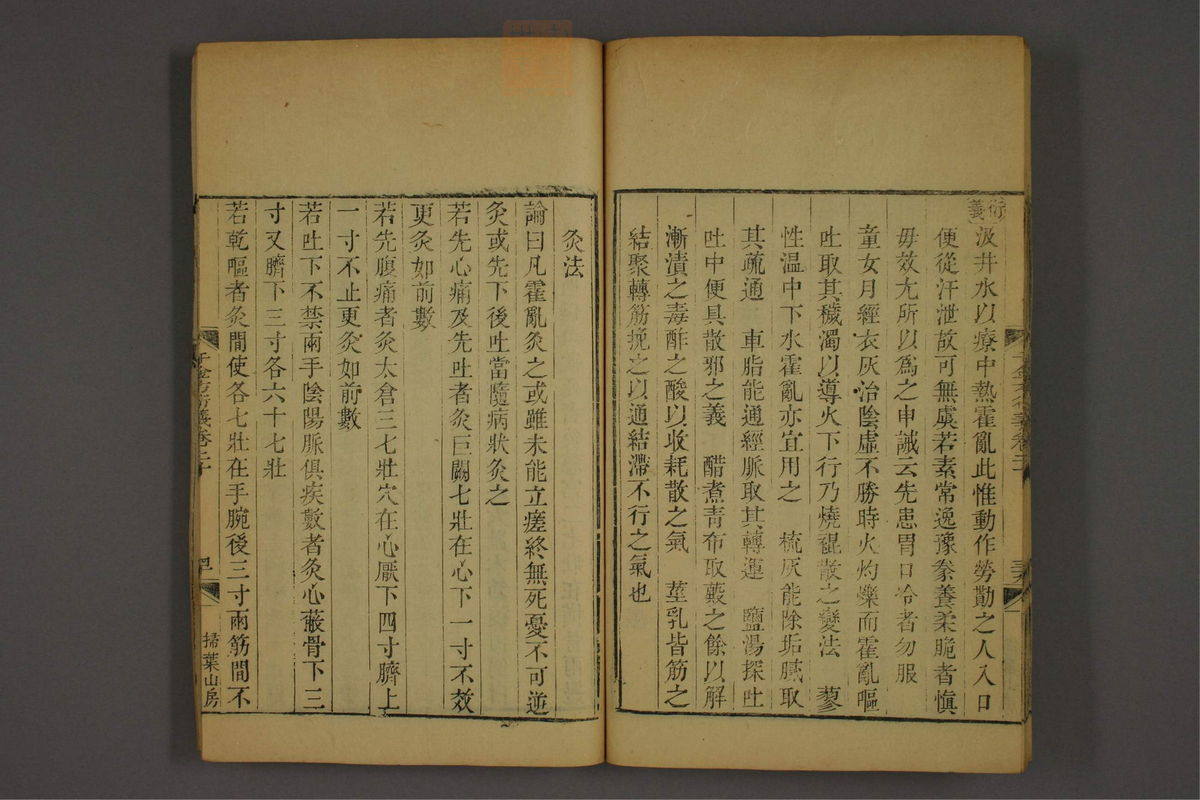 衍義
汲井水以療中熱霍亂此惟動作勞勩之人入口
便從汗泄故可無虞若素常逸豫豢養柔脆者愼
毋效尤所以爲之申誡云先患胃口冷者勿服
童女月經衣灰治陰虛不勝時火灼爍而霍亂嘔
吐取其穢濁以導火下行乃燒裩散之變法 蓼
性温中下水霍亂亦宜用之 梳灰能除垢膩取
其疏通 車脂能通經脈取其轉運 鹽湯探吐
吐中便具散邪之義 醋煮青布取藍之餘以解
漸漬之毒酢之酸以收耗散之氣 莖乳皆筋之
結聚轉筋挽之以通結滯不行之氣也
千金方衍義卷二十
灸法
論曰凡霍亂灸之或雖未能立瘥終無死憂不可逆
灸或先下後吐當隨病狀灸之
若先心痛及先吐者灸巨闕七壯在心下一寸不效
更灸如前數
若先腹痛者灸太倉三七壯穴在心厭下四寸臍上
一寸不止更灸如前數
若吐下不禁兩手陰陽脈俱疾數者灸心蔽骨下三
寸又臍下三寸各六十七壯
若乾嘔者灸間使各七壯在手腕後三寸兩筋間不
千金方衍義卷二十
掃葉山房